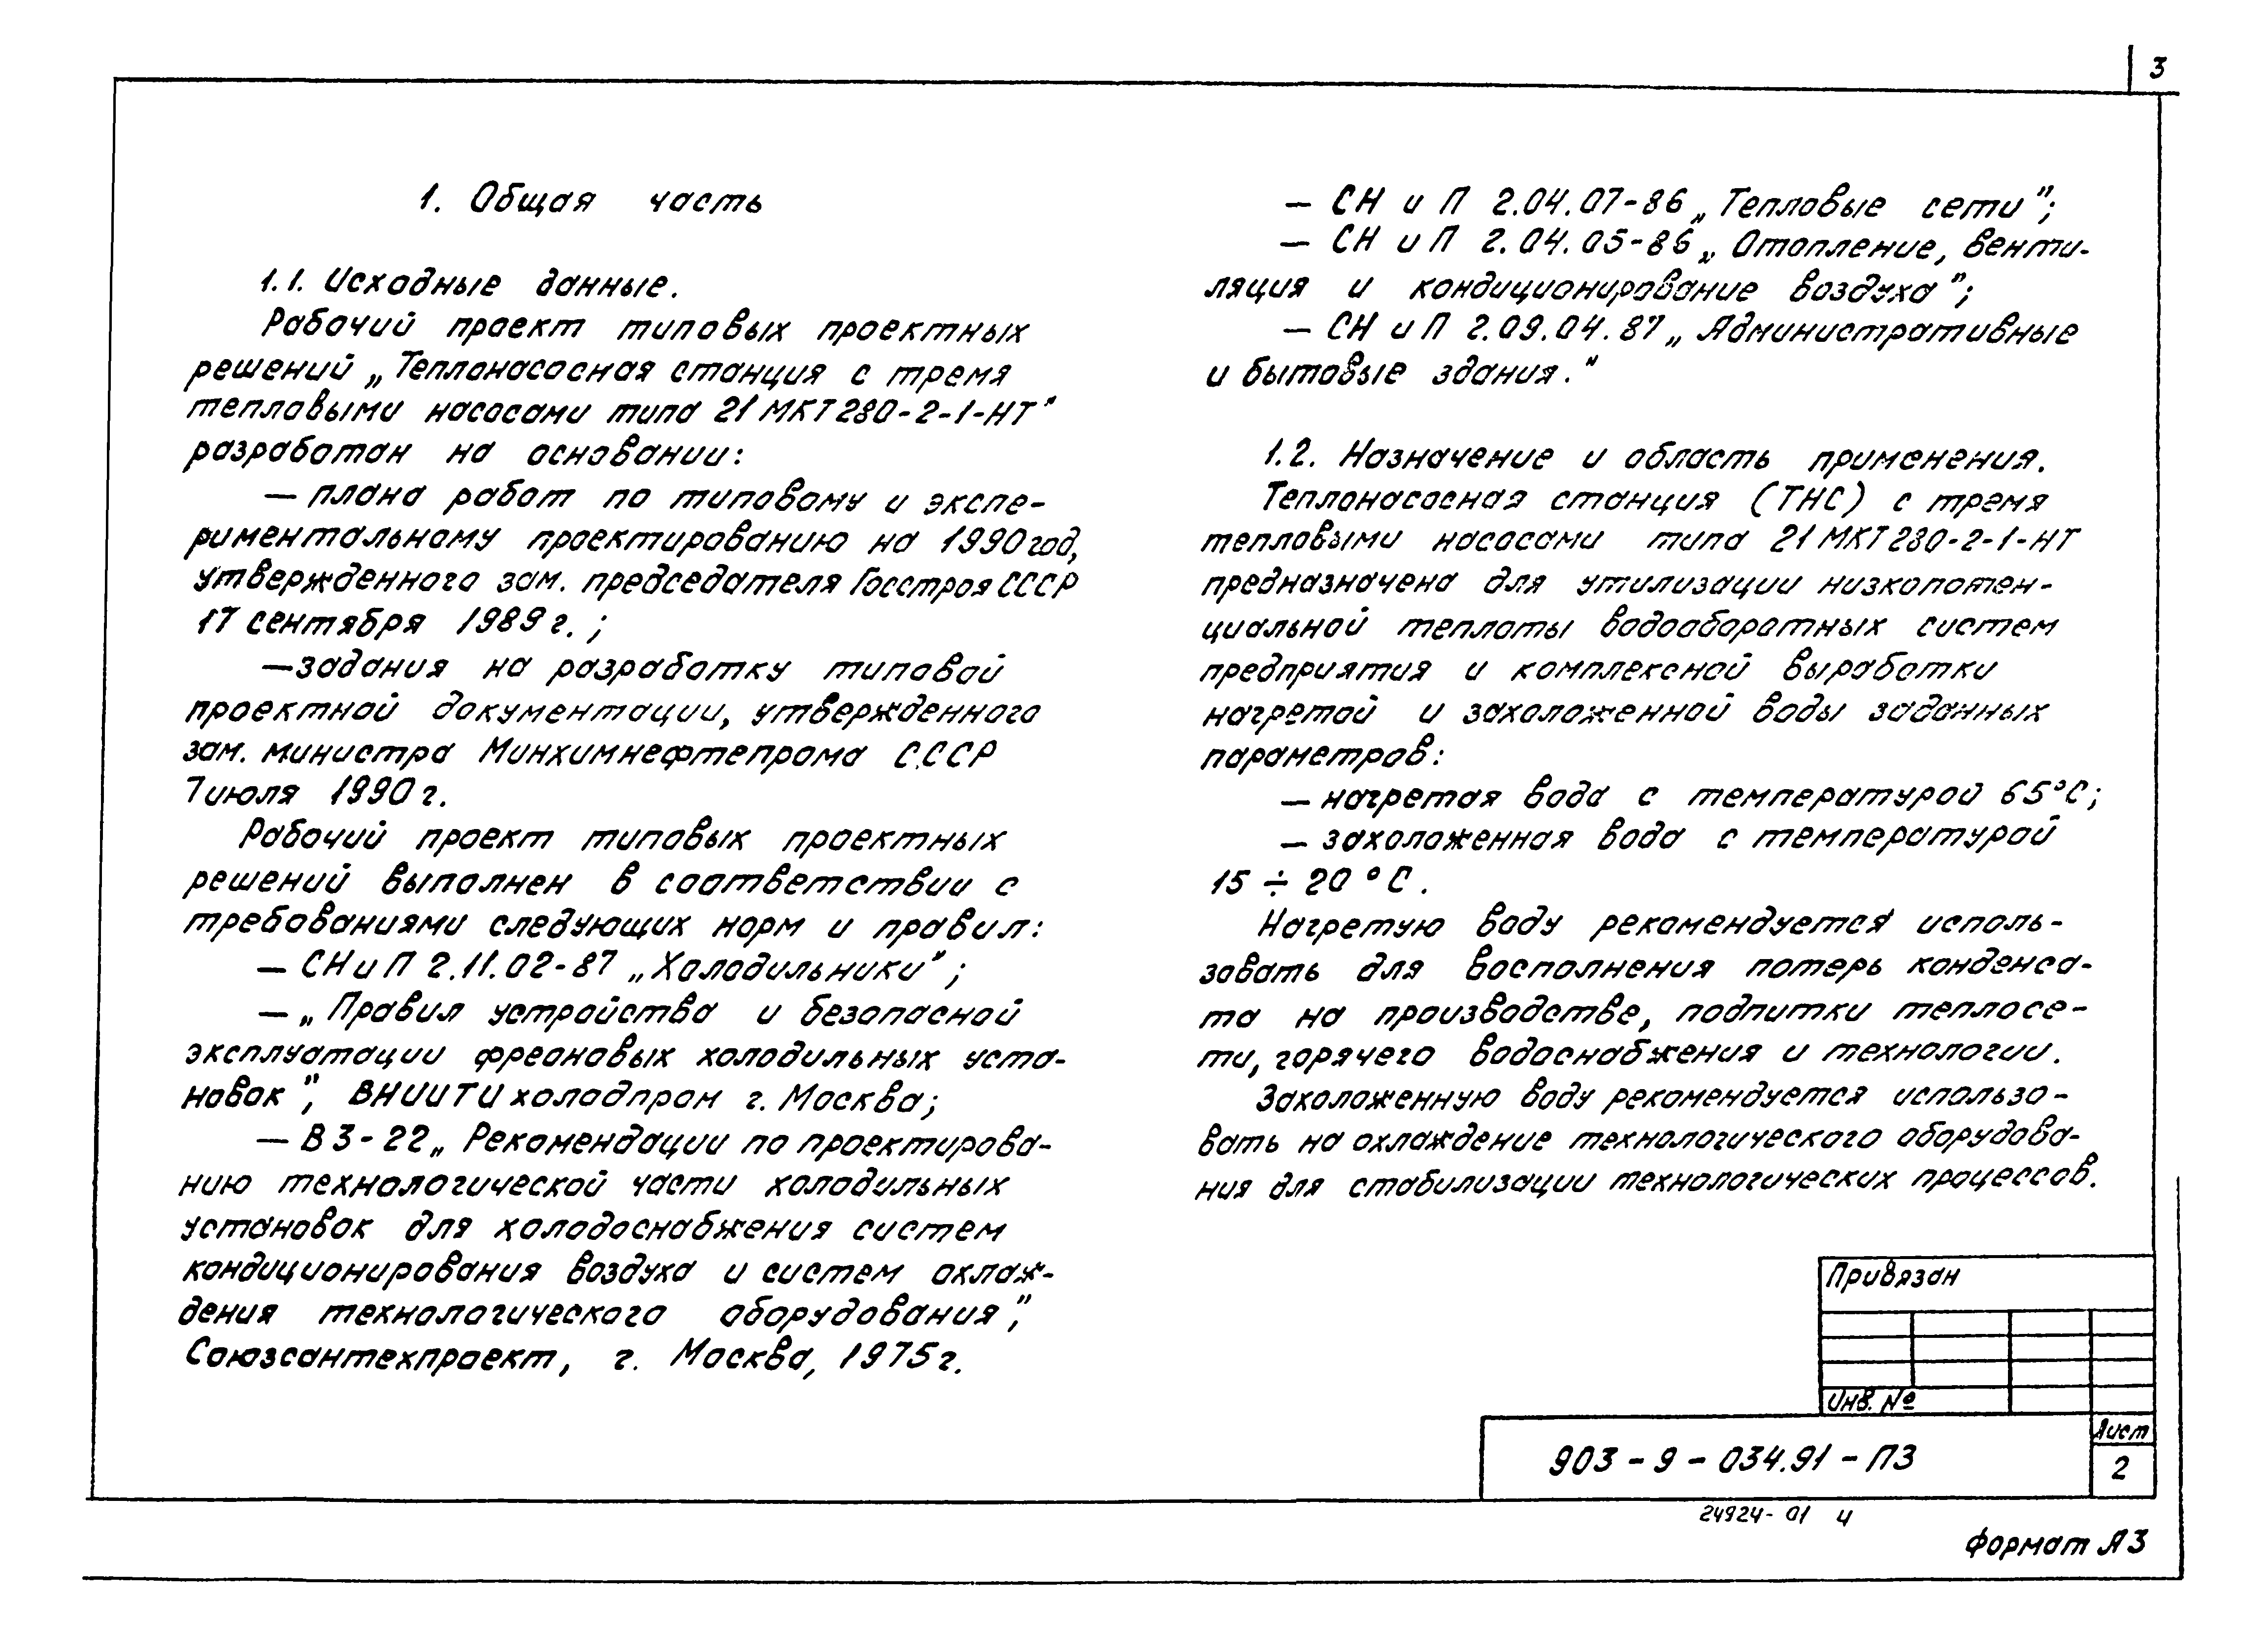 3
1. Общая часть
1.1. Исходные данные.
Рабочий проект типовых проектных
решений „Теплонасосная станция с тремя
тепловыми насосами типа 21 МКТ 280-2-1-НТ"
разработан на основании:
— плана работ по типовому и экспе-
риментальному проектированию на 1990 год,
утвержденного зам. председателя Госстроя СССР
17 сентября 1989 г. ;
— задания на разработку типовой
проектной документации, утвержденного
зам. министра Минхимнефтепрома СССР
7 июля 1990 г.
Рабочий проект типовых проектных
решений выполнен в соответствии с
требованиями следующих норм и правил:
— СН и П 2.11.02-87 „Холодильники";
— „Правил устройства и безопасной
эксплуатации фреоновых холодильных уста-
новок", ВНИИТИхолодпром г. Москва;
— В3-22 „Рекомендации по проектирова-
нию технологической части холодильных
установок для холодоснабжения систем
кондиционирования воздуха и систем охлаж-
дения технологического оборудования",
Союзсантехпроект, г. Москва, 1975 г.
— СН и П 2.04.07-86 „Тепловые сети";
— СН и П 2.04.05-86 „Отопление, венти-
ляция и кондиционирование воздуха";
— СН и П 2.09.04.87 „Административные
и бытовые здания."
1.2. Назначение и область применения.
Теплонасосная станция (ТНС) с тремя
тепловыми насосами типа 21 МКТ 280-2-1-НТ
предназначена для утилизации низкопотен-
циальной теплоты водооборотных систем
предприятия и комплексной выработки
нагретой и захоложенной воды заданных
параметров:
— нагретая вода с температурой 65°С;
— захоложенная вода с температурой
15 ÷ 20 °С.
Нагретую воду рекомендуется исполь-
зовать для восполнения потерь конденса-
та на производстве, подпитки теплосе-
ти, горячего водоснабжения и технологии.
Захоложенную воду рекомендуется использо-
вать на охлаждение технологического оборудова-
ния для стабилизации технологических процессов.
Привязан
Инв. №
903 - 9 - 034.91 - ПЗ
Лист
2
24924-01 4
Формат А3